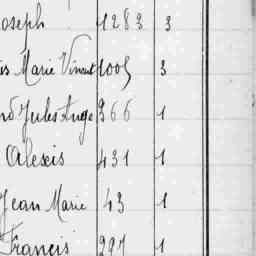 Joseph 1283 3
Marie Vincent 1005 3
Jules Ange 366 1
Alexis 431 1
Jean Marie 43 1
Francis 297 1